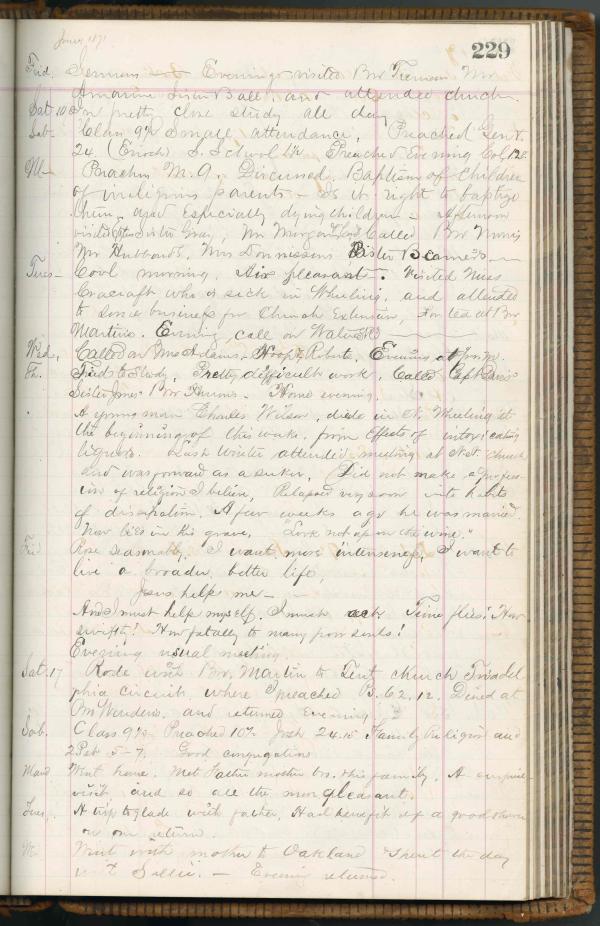 June 1871
229
Frid. Sermons Evening visited Bro Mr
Ball, and attended church.
Sat 10 In pretty close study all day
Sab- Class 9½ Small attendance, Preached Gen.
24 (Enoch) S. School Preached Evening Col. 1.28
M- Preachers M. 9. Discussed Baptism of Children
of irreligious parents - Is it right to baptize
them, and especially dying children - Afternoon
visited Sister Gray, Mr Morgan Called Bro Norris
Mr Hubbards, Mrs Sister Beamer's
Tues- Cool morning. Air pleasant. Visited Miss
Cracraft who is sick in Wheeling, and attended
to some business for Church Extension, For tea at Bro
Martin's. Evening call on
Wed, Called on McAdams, & Roberts, Evening at
Th. Tried to study, Pretty difficult work, Called Capt Davis
Sister Jones Bro Home evening.
A young man Charles Wilson, died in N. Wheeling at
the beginning of this week, from effects of intoxicating
liquors. Last Winter attended meeting at church
and was forward as a seeker, Did not make a profess-
ion of religion I believe, Relapsed very soon into habits
of dissipation. A few weeks ago he was married
Now lies in his grave, "Look not upon the wine."
Fri Rose seasonably. I want more intenseness, I want to
live a broader, better life,
Jesus help me -
And I must help myself. I must act. Time flies! How
swiftly! How fatally to many poor souls!
Evening usual meeting
Sat. 17 Rode with Bro. Martin to Tent church Triadel
phia Circuit, where I preached 62.12. Dined at
Bro and returned Evening.
Sab. Class 9½ Preached 10½ Josh 24.15 Family Religion and
2 Pet 5-7. Good congregations
Mond Went home. Met Father mother bro. & his family. A surprise
visit and so all the more pleasant.
Tues. A trip to glade with father, Had benefit of a good shower
on our return.
W Went with mother to Oakland Spent the day
with Sallie. - Evening returned.